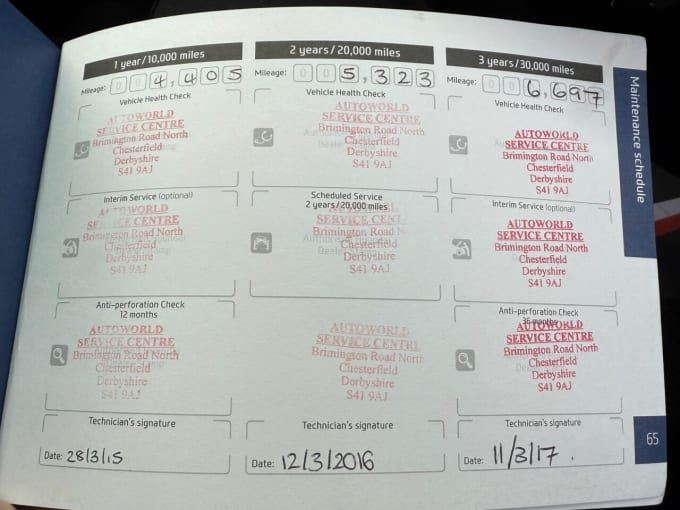 1 year/10,000 miles
Mileage: 004,405
Vehicle Health Check
AUTOWORLD
SERVICE CENTRE
Brimington Road North
Chesterfield
Derbyshire
S41 9AJ
Interim Service (optional)
AUTOWORLD
SERVICE CENTRE
Brimington Road North
Chesterfield
Derbyshire
S41 9AJ
Anti-perforation Check
12 months
AUTOWORLD
SERVICE CENTRE
Brimington Road North
Chesterfield
Derbyshire
S41 9AJ
Technician's signature
Date: 28/3/15
2 years/20,000 miles
Mileage: 005,323
Vehicle Health Check
AUTOWORLD
SERVICE CENTRE
Brimington Road North
Chesterfield
Derbyshire
S41 9AJ
Scheduled Service
2 years/20,000 miles
AUTOWORLD
SERVICE CENT
Brimington Road N
Chesterfield
Derbyshire
S41 9AJ
AUTOWORLD
SERVICE CENTRE
Brimington Road North
Chesterfield
Derbyshire
S41 9AJ
Technician's signature
Date: 12/3/2016
3 years/30,000 miles
Mileage: 006,697
Vehicle Health Check
AUTOWORLD
SERVICE CENTRE
Brimington Road North
Chesterfield
Derbyshire
S41 9AJ
Interim Service (optional)
AUTOWORLD
SERVICE CENTRE
Brimington Road North
Chesterfield
Derbyshire
S41 9AJ
Anti-perforation Check
36 months
AUTOWORLD
SERVICE CENTRE
Brimington Road North
Chesterfield
Derbyshire
S41 9AJ
Technician's signature
Date: 11/3/17.
Maintenance schedule
65